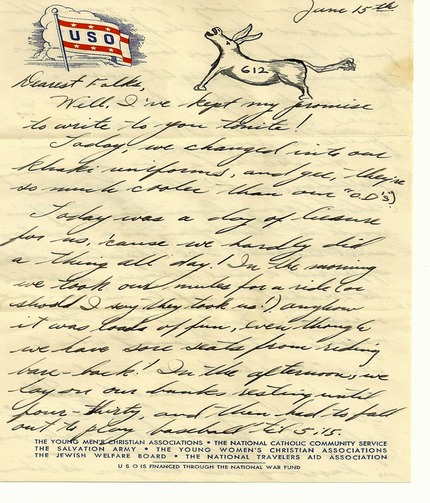 June 15th
USO
612
Dearest Folks,
Well, I've kept my promise
to write to you tonite!
Today, we changed into our
khaki uniforms, and gee, they're
so much cooler than our "O.D's")
Today was a day of leisure
for us, 'cause we hardly did
a thing all day! In the morning
we took our mules for a ride (or
should I say they took us!) anyhow
it was loads of fun, even though
we have sore seats from riding
bare-back! In the afternoon, we
lay on our bunks resting until
four-thirty, and then had to fall
out to play baseball 'til 5:15.
THE YOUNG MEN'S CHRISTIAN ASSOCIATIONS • THE NATIONAL CATHOLIC COMMUNITY SERVICE
THE SALVATION ARMY • THE YOUNG WOMEN'S CHRISTIAN ASSOCIATIONS
THE JEWISH WELFARE BOARD • THE NATIONAL TRAVELERS AID ASSOCIATION
USO IS FINANCED THROUGH THE NATIONAL WAR FUND